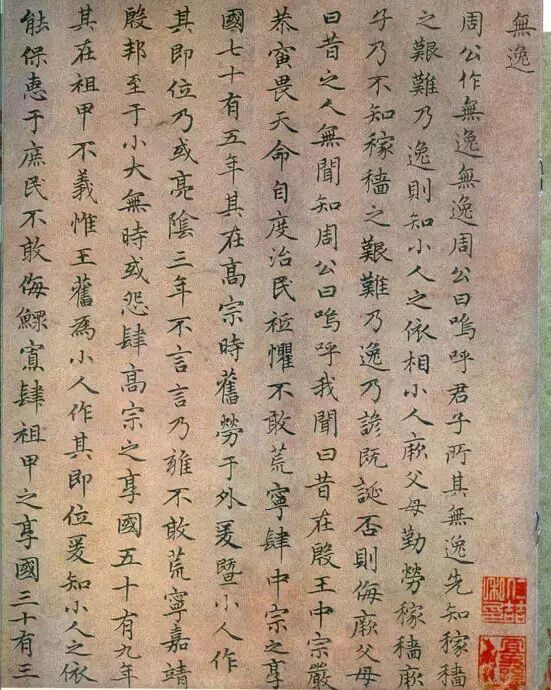 無逸
周公作無逸無逸周公曰嗚呼君子所其無逸先知稼穡
之艱難乃逸則知小人之依相小人厥父母勤勞稼穡厥
子乃不知稼穡之艱難乃逸乃諺既誕否則侮厥父母
曰昔之人無聞知周公曰嗚呼我聞曰昔在殷王中宗嚴
恭寅畏天命自度治民祗懼不敢荒寧肆中宗之享
國七十有五年其在高宗時舊勞于外爰暨小人作
其即位乃或亮陰三年不言言乃雍不敢荒寧嘉靖
殷邦至于小大無時或怨肆高宗之享國五十有九年
其在祖甲不義惟王舊爲小人作其即位爰知小人之依
能保惠于庶民不敢侮鰥寡肆祖甲之享國三十有三